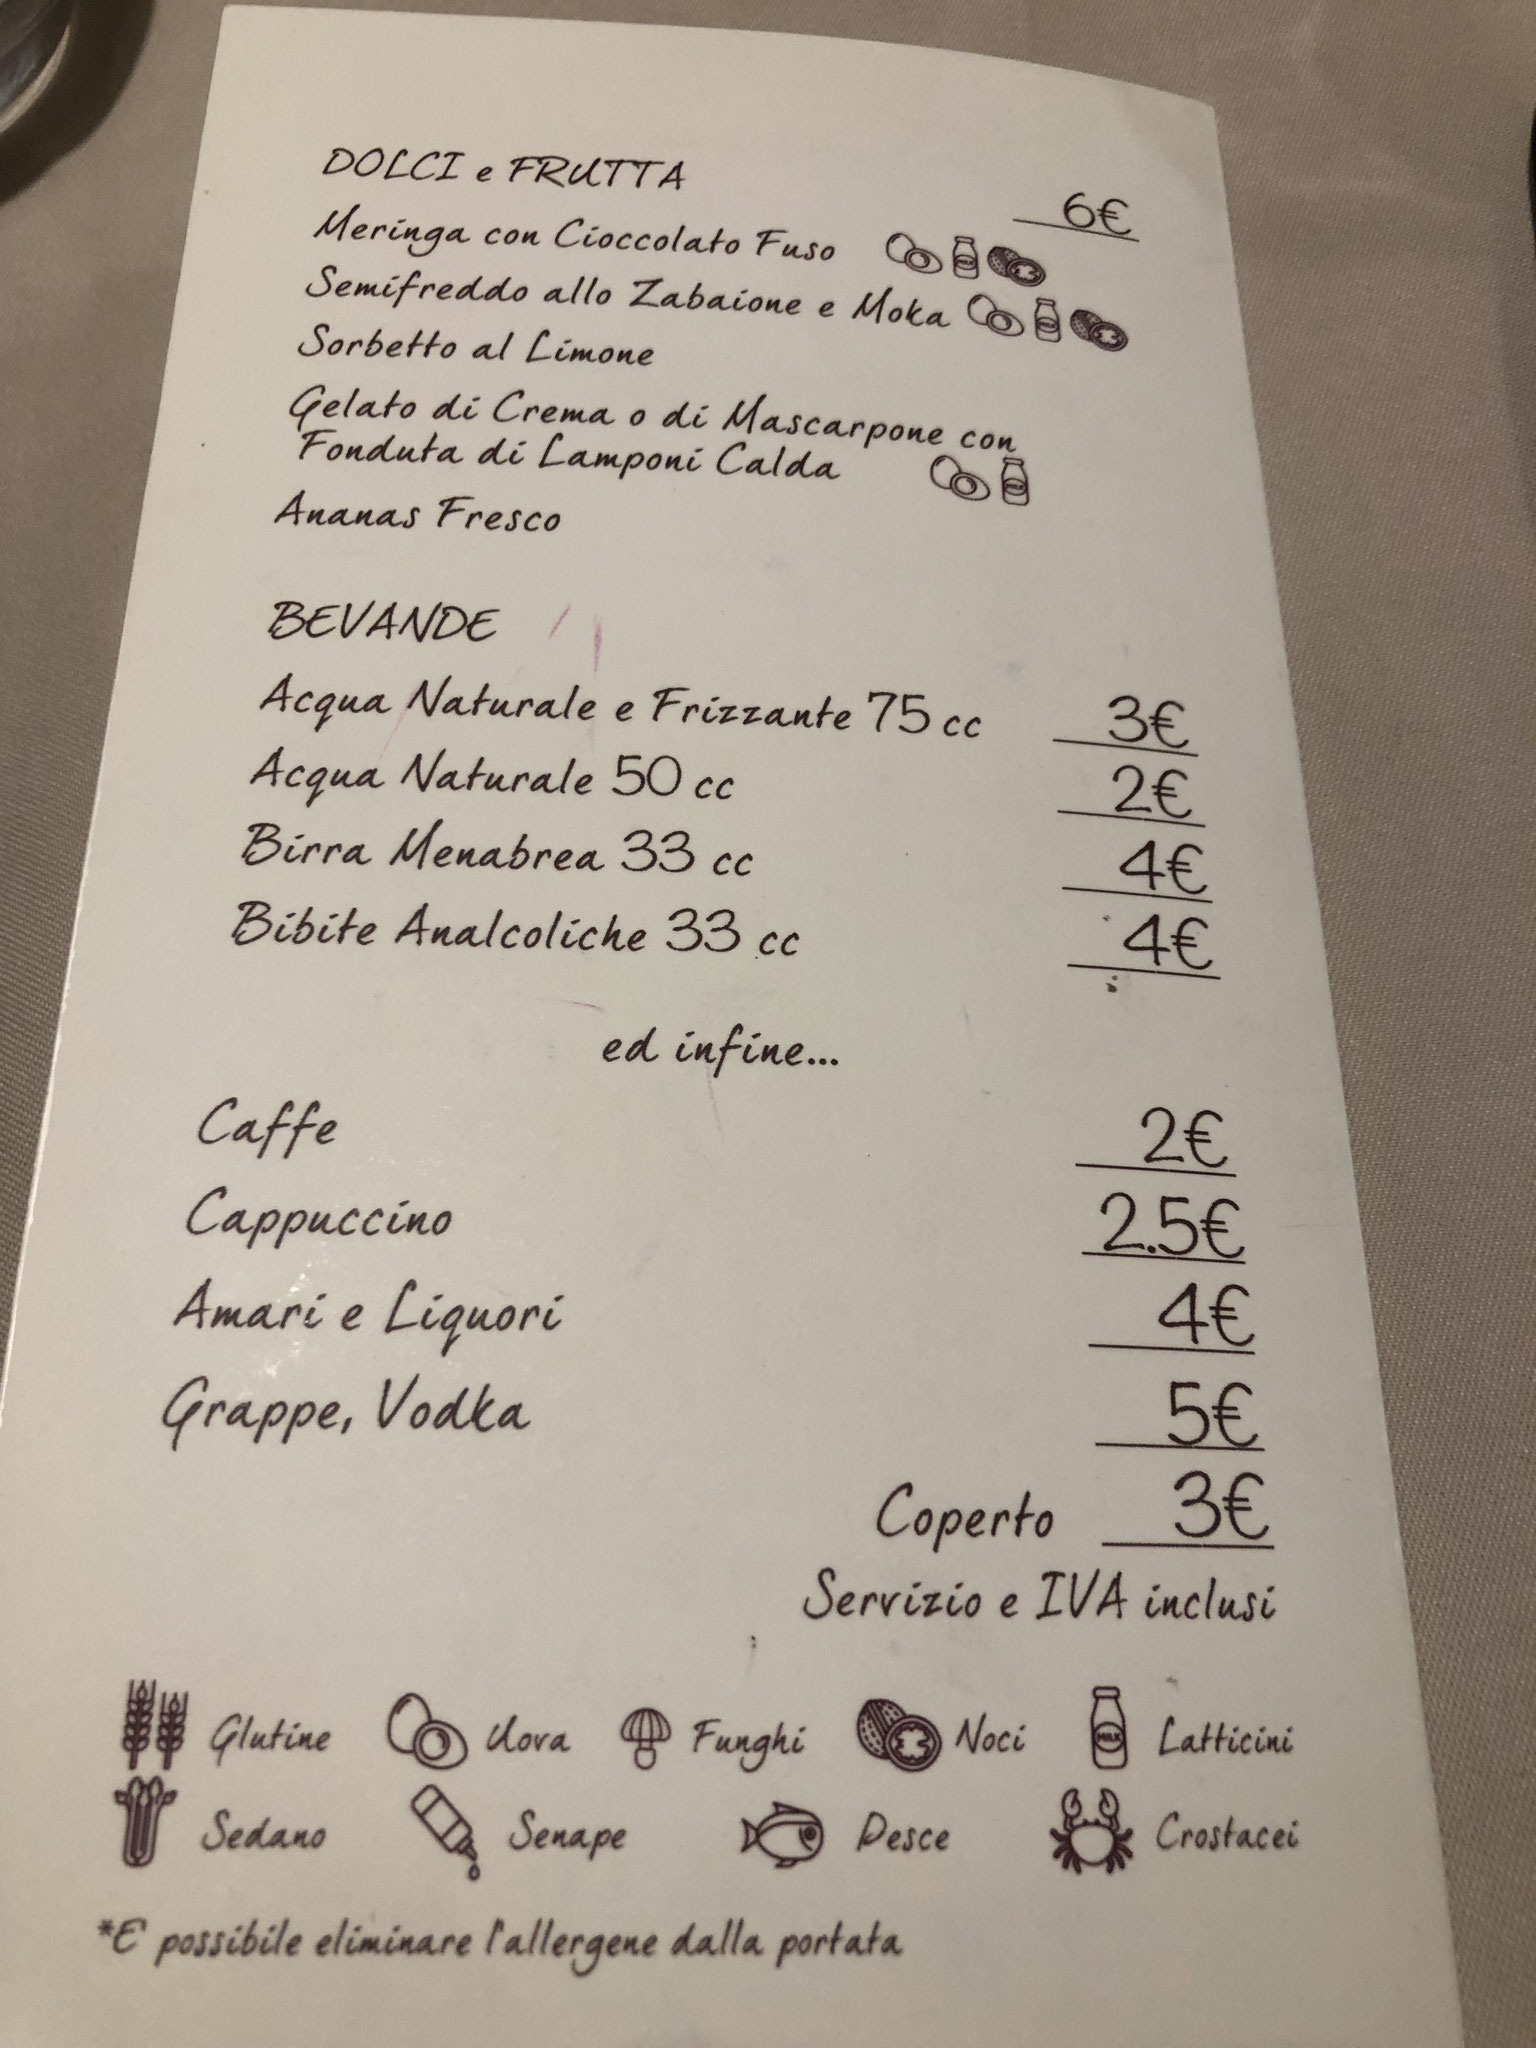 DOLCI e FRUTTA
6€
Meringa con Cioccolato Fuso
Semifreddo allo Zabaione e Moka
Sorbetto al Limone
Gelato di Crema o di Mascarpone con
Fonduta di Lamponi Calda
Ananas Fresco
BEVANDE
Acqua Naturale e Frizzante 75 cc 3€
Acqua Naturale 50 cc 2€
Birra Menabrea 33 cc 4€
Bibite Analcoliche 33 cc 4€
ed infine...
Caffe 2€
Cappuccino 2.5€
Amari e Liquori 4€
Grappe, Vodka 5€
Coperto 3€
Servizio e IVA inclusi
Glutine Uova Funghi Noci MILK Latticini
Sedano Senape Pesce Crostacei
*E' possibile eliminare l'allergene dalla portata